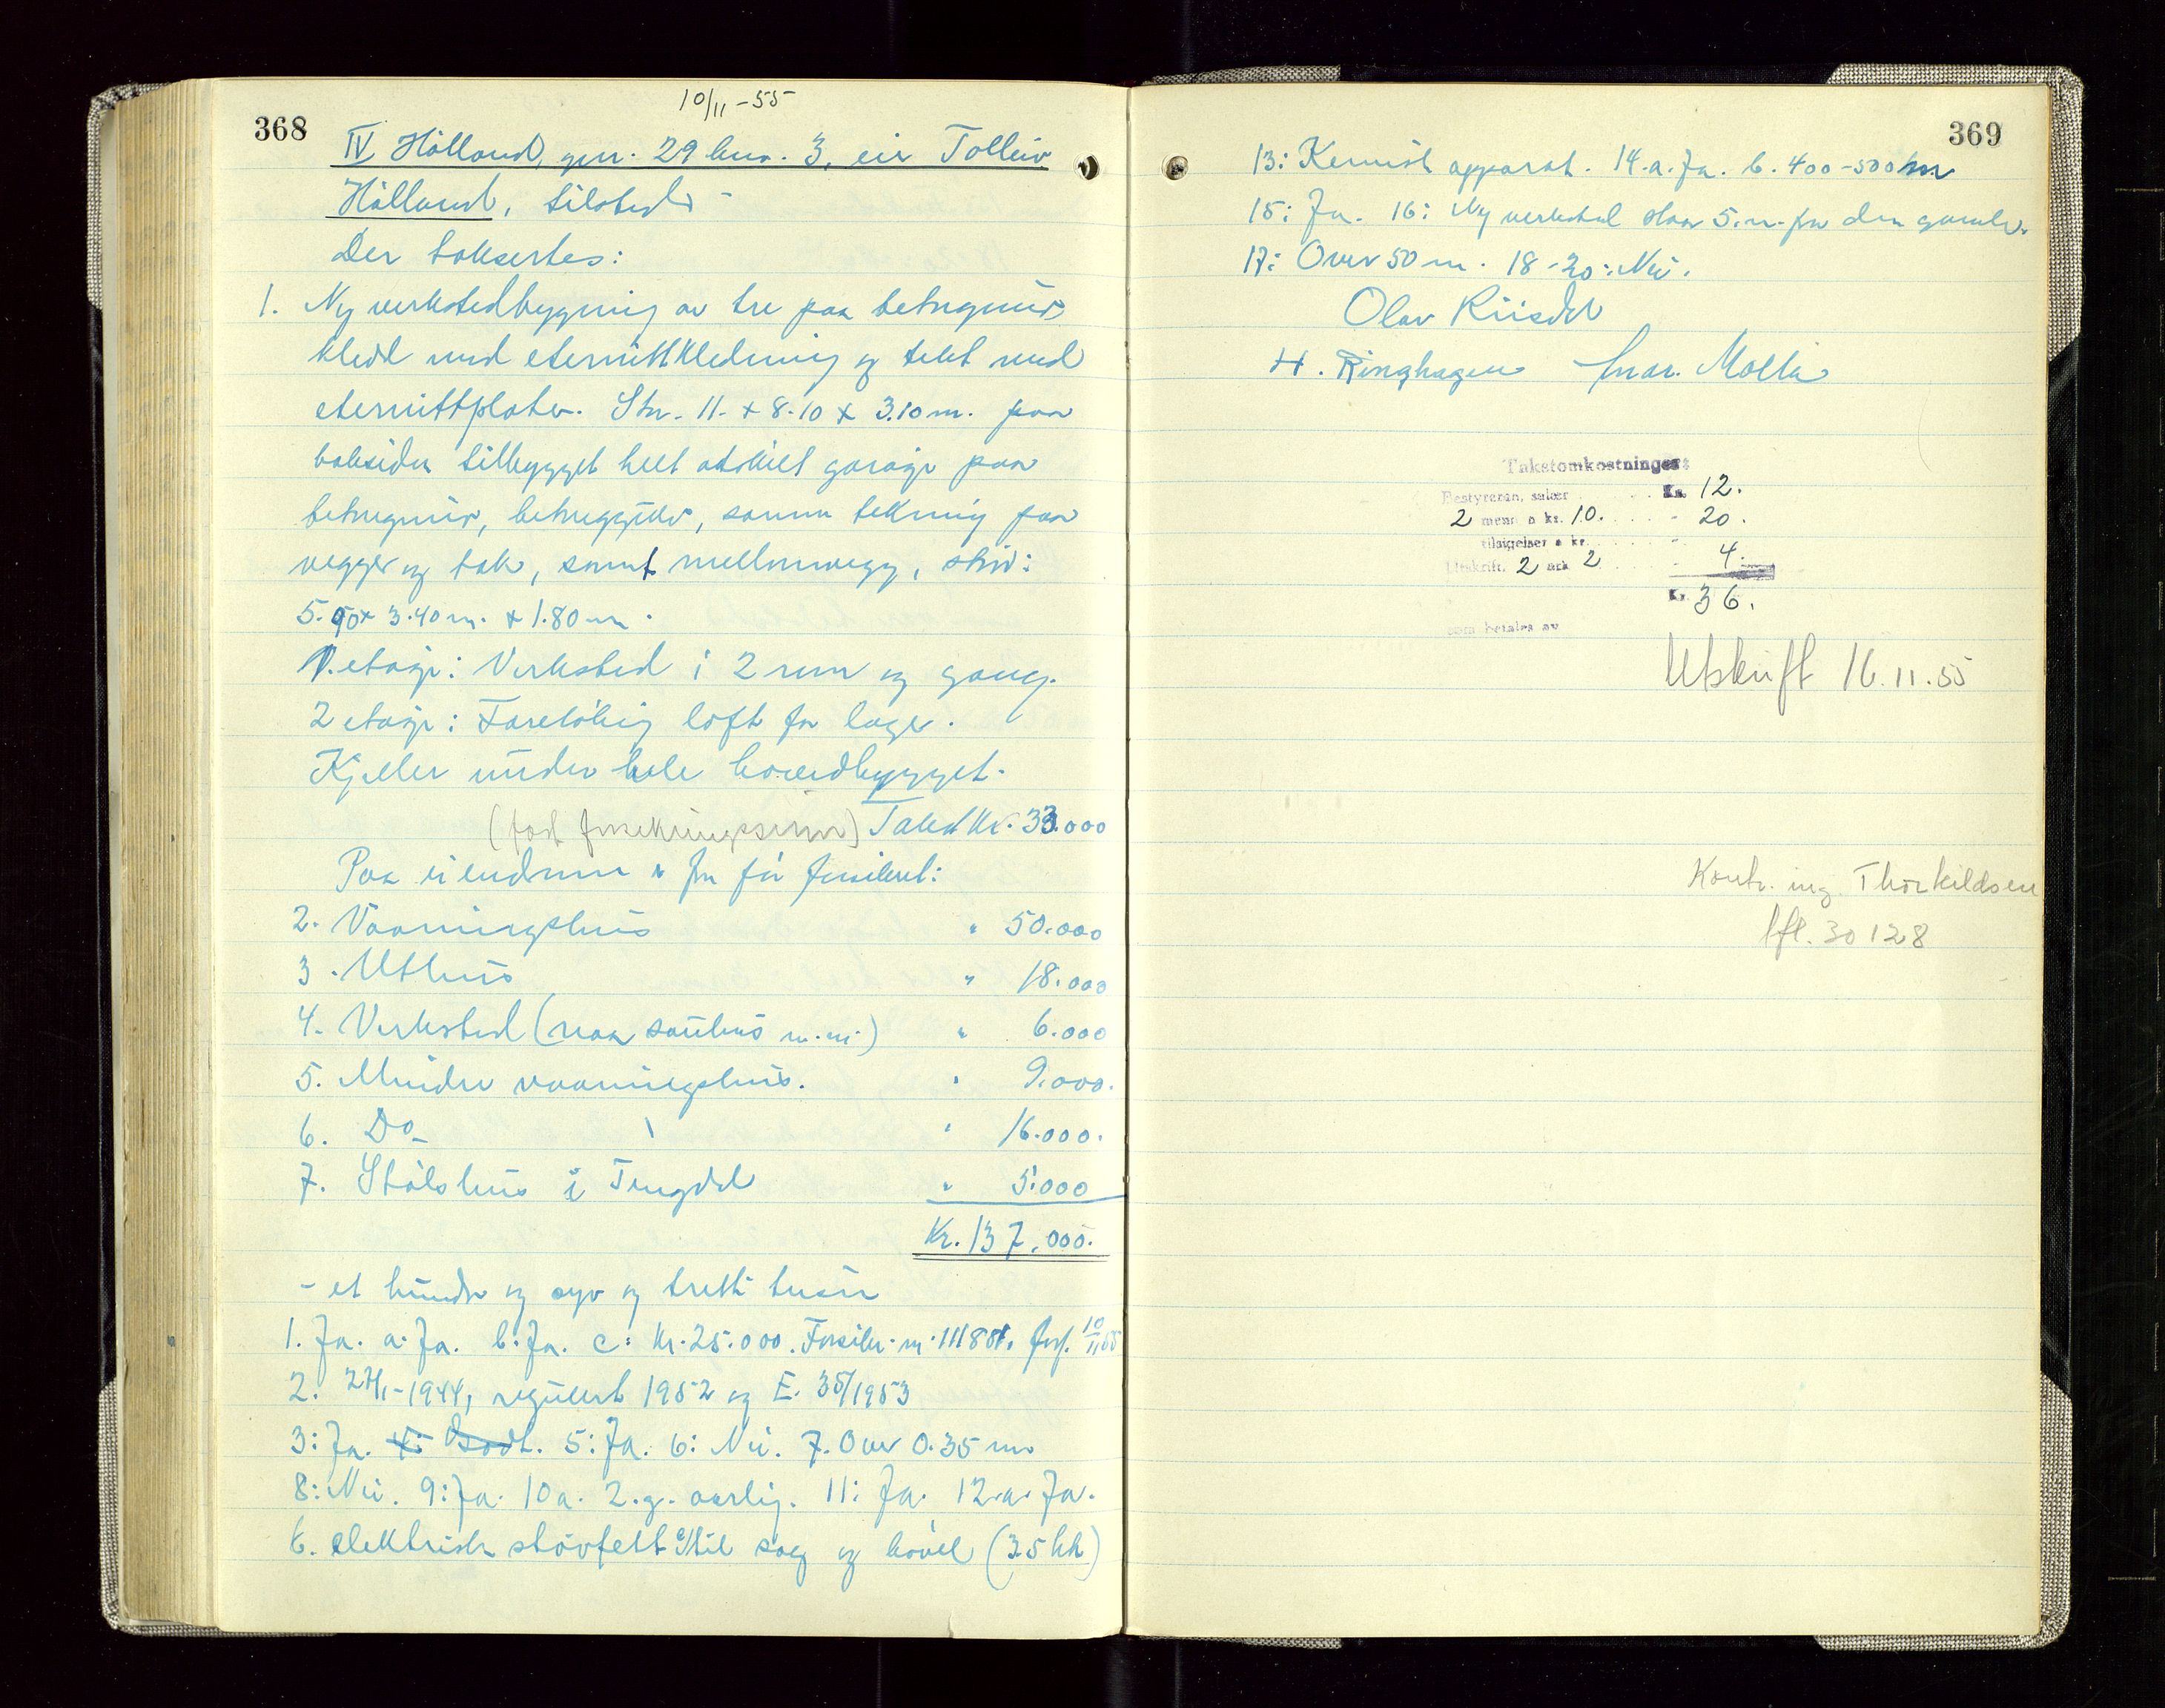 368
10/11-55
IV Hålland, gnr. 29 bnr. 3, eir Tolleiv
Hålland, tilsteds -
Der taksertes:
1. Ny verkstedbygning av tre paa betongmur
kledd med eternittkledning og tekt med
eternittplater. Str. 11. x 8.10 x 3.10 m. paa
baksiden tilbygget helt atskilt garage paa
betongmur, betonggulv, samme tekning paa
vegger og tak, samt mellomvegg, strd:
5.90 x 3.40 m. x 1.80 m.
1. etage: Verksted i 2 rum og gang.
2 etage: Foreløbig loft for lager.
Kjeller under hele hovedbygget.
(fast forsikringssum) Takst kr. 33.000
Paa eiendommen er fra før forsikret:
2. Vaaningshus " 50.000
3. Uthus " 18.000
4. Verksted (naa sauhus m.m.) " 6.000
5. Mindre vaaningshus. " 9.000.
6. Do " 16.000.
7. Stølshus i Tengdel " 5.000
Kr. 137.000.
- et hundre og syv og tretti tusen
1. Ja. a. Ja. b: Ja. c: kr. 25.000. Forsikr. m. 111881. forf. 10/11 55
2. 27/1-1944, regulert 1952 og E. 35/1953
3: Ja. 4: Godt. 5: Ja. 6: Nei. 7. Over 0.35 m
8: Nei. 9: Ja. 10 a. 2.g. aarlig. 11: Ja. 12. a. Ja.
b. elektrisk støvtett el/til sag og høvel (3.5 hk)
369
13: Kemisk apparat. 14. a. Ja. b. 400-500 m
15: Ja. 16: Ny verksted staar 5. m. fra den gamle.
17: Over 50 m. 18-20: Nei.
Olav Riisdal
H. Ringhagen Ingv. Molla
Takstomkostninger:
Bestyreren, salær Kr. 12.
2 menn a kr. 10. - 20.
tilsigelser a kr. "
Utskrift, 2 ark 2 - 4.
Kr. 36.
som betales av
Utskrift 16.11.55
Kontr. ing. Thorkildsen
tlf. 30128